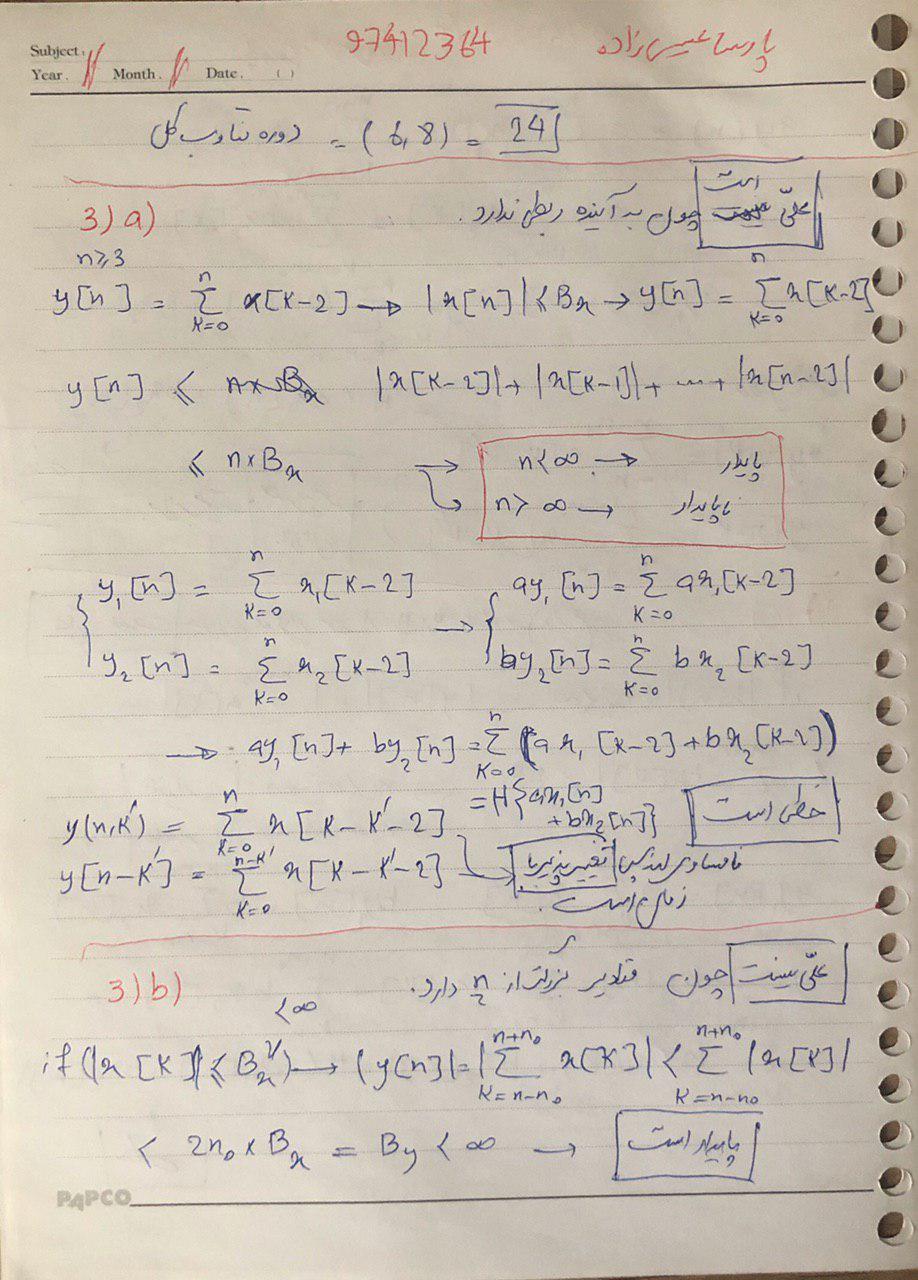 Subject:
97412364 پارسا عیسی زاده
Year. Month. Date. ( )
دوره تناوب کل = (6,8) = 24
3) a)
علّی است چون به آینده ربطی ندارد.
n≥3
y[n] = ∑_{K=0}^{n} x[K-2] → |x[n]| ≤ Bx → y[n] = ∑_{K=0}^{n} x[K-2]
y[n] ≤ |x[K-2]| + |x[K-1]| + ... + |x[n-2]|
≤ n×Bx → n<∞ → پایدار
n≥∞ → ناپایدار
y₁[n] = ∑_{K=0}^{n} x₁[K-2] → ay₁[n] = ∑_{K=0}^{n} ax₁[K-2]
y₂[n] = ∑_{K=0}^{n} x₂[K-2] by₂[n] = ∑_{K=0}^{n} bx₂[K-2]
→ ay₁[n] + by₂[n] = ∑_{K=0}^{n} (ax₁[K-2] + bx₂[K-2])
= H{ax₁[n] + bx₂[n]} خطی است
y(n,K') = ∑_{K=0}^{n} x[K-K'-2]
y[n-K'] = ∑_{K=0}^{n-K'} x[K-K'-2] → نامساوی اند پس تغییرپذیر با
زمان است.
3) b)
علّی نیست چون مقادیر بزرگتر از n دارد.
<∞
if (|x[K]| ≤ Bx) → |y[n]| = |∑_{K=n-n₀}^{n+n₀} x[K]| < ∑_{K=n-n₀}^{n+n₀} |x[K]|
< 2n₀×Bx = By < ∞ → پایدار است
PAPCO